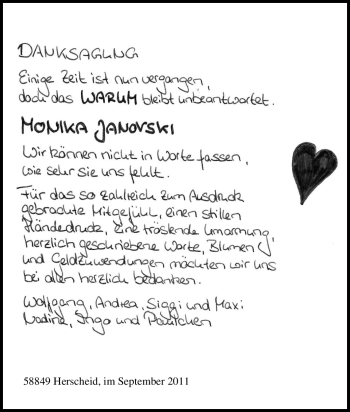 DANKSAGUNG
Einige Zeit ist nun vergangen,
doch das WARUM bleibt unbeantwortet.
MONIKA JANOVSKI
Wir können nicht in Worte fassen,
wie sehr sie uns fehlt.
Für das so zahlreich zum Ausdruck
gebrachte Mitgefühl, einen stillen
Händedruck, eine tröstende Umarmung,
herzlich geschriebene Worte, Blumen
und Geldzuwendungen möchten wir uns
bei allen herzlich bedanken.
Wolfgang, Andrea, Siggi und Maxi
Nadine, Ingo und Paulchen
58849 Herscheid, im September 2011